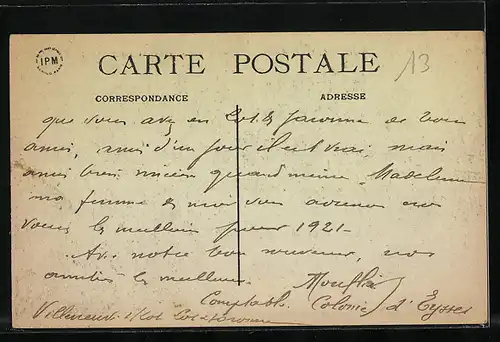 IPM
13
CARTE POSTALE
CORRESPONDANCE
ADRESSE
que vous avez en Lot & Garonne de bons
amis, amis d'un jour il est vrai mais
amis bien sincères quand même. Madeleine
ma femme & moi vous adressons nos
voeux les meilleurs pour 1921 -
Avec notre bon souvenir, nos
amitiés les meilleures.
Comptable Colonie d'Eysses
Villeneuve s/Lot Lot & Garonne